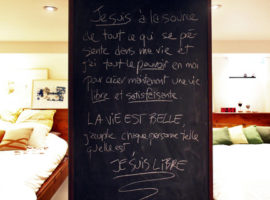 Je suis à la source
de tout ce qui se pré-
sente dans ma vie et
j'ai tout le pouvoir en moi
pour créer maintenant une vie
libre et satisfaisante.
LA VIE EST BELLE,
j'accepte chaque personne telle
qu'elle est,
JE SUIS LIBRE